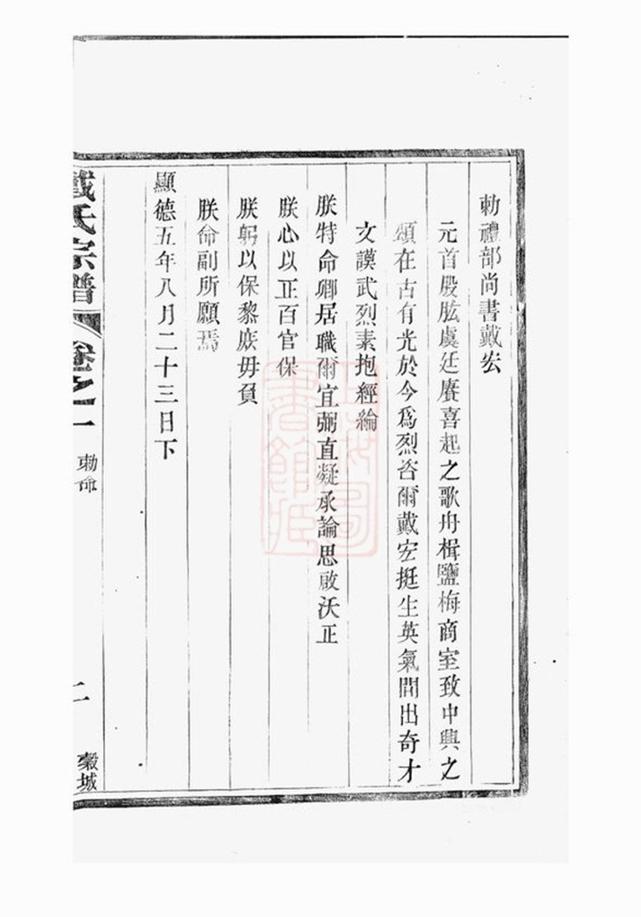 勅禮部尚書戴宏
元首股肱虞廷賡喜起之歌舟楫鹽梅商室致中興之
頌在古有光於今爲烈咨爾戴宏挺生英氣間出奇才
文謨武烈素抱經綸
朕特命卿居職爾宜弼直凝承論思啟沃正
朕心以正百官保
朕躬以保黎庶毋負
朕命副所願焉
顯德五年八月二十三日下
戴氏宗譜 卷之一 勅命 二 穀城